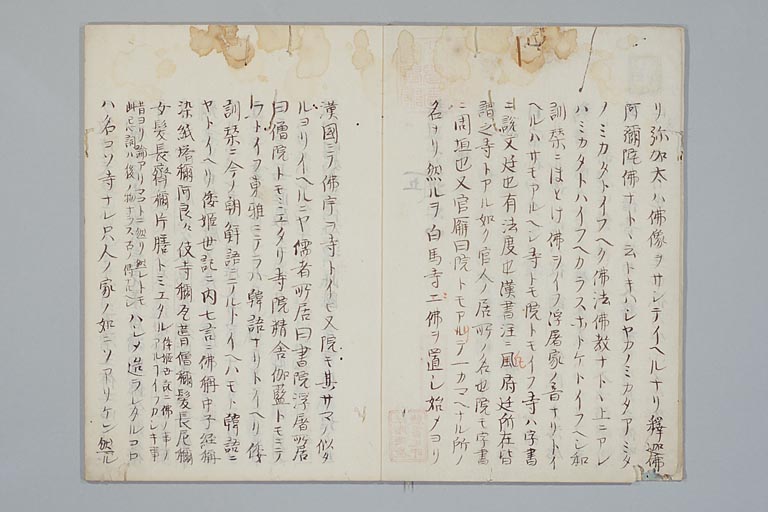 リ弥加太ハ佛像ヲサシテイヘルナリ釋迦佛
阿彌陀佛ナト云トキハシヤカノミカタアミタ
ノミカタトイフヘク佛法佛教ナト上ニアレ
ハミカタトハイフヘカラスホトケトイフヘシ和
訓栞ニほとけ佛ヲイフ浮屠家ノ音ナリトイ
ヘルハサモアルヘシ寺トモ院トモイフ寺ハ字書
ニ説文廷也有法度也漢書注ニ風府廷所在皆
謂之寺トアル如ク官人ノ居所ノ名也院モ字書
ニ周垣也又官廨曰院トモアリテ一カマヘナル所ノ
名ナリ然ルヲ白馬寺ニ佛ヲ置シ始メヨリ
漢國ニテ佛宇ヲ寺トイヒ又院モ其サマノ似タ
ルヨリイヘルニヤ儒者所居曰書院浮屠所居
曰僧院トモミエタリ寺院精舎伽藍トモミテ
ラトイフ東雅ニテラハ韓語ナリトイヘリ倭
訓栞ニ今ノ朝鮮語ニテルトイヘハモト韓語ニ
ヤトイヘリ倭姫世記ニ内七言ニ佛稱中子経稱
染紙塔稱阿良々伎寺稱瓦葺僧稱髪長尼稱
女髪長齋稱片膳トミエタル
ハシメ造ラレタルコロ
ハ名コソ寺ナレ只人ノ家ノ如ニソアリケン然ル